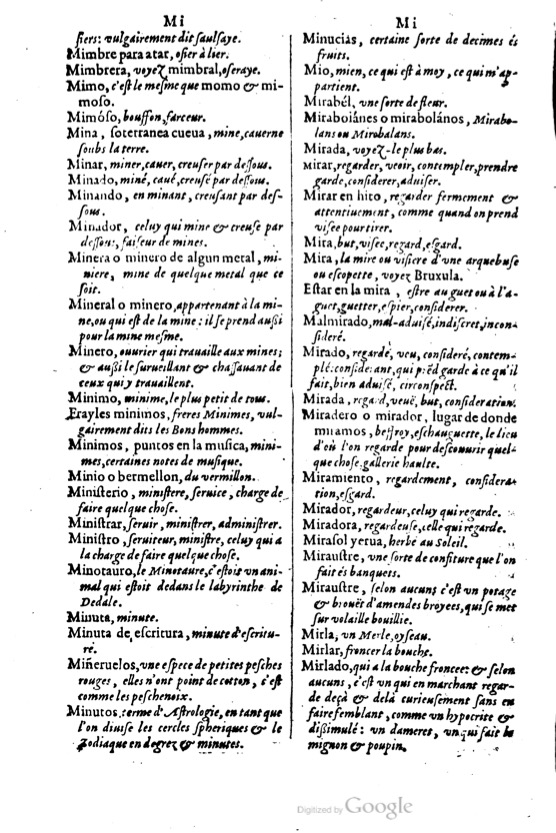 Mi
siers: vulgairement dit saulsaye.
Mimbre para atar, osier à lier.
Mimbrera, voyez mimbral, oseraye.
Mimo, c'est le mesme que momo & mi-
moso.
Mimóso, bouffon, farceur.
Mina, soterranea cueua, mine, cauerne
soubs la terre.
Minar, miner, cauer, creuser par dessous.
Minado, miné, caué, creusé par dessous.
Minando, en minant, creusant par des-
sous.
Minador, celuy qui mine & creuse par
dessous, faiseur de mines.
Minera o minero de algun metal, mi-
niere, mine de quelque metal que ce
soit.
Mineral o minero, appartenant à la mi-
ne, ou qui est de la mine: il se prend aussi
pour la mine mesme.
Minero, ouurier qui trauaille aux mines;
& aussi le surueillant & chassauant de
ceux qui y trauaillent.
Minimo, minime, le plus petit de tous.
Frayles minimos, freres Minimes, vul-
gairement dits les Bons hommes.
Minimos, puntos en la musica, mini-
mes, certaines notes de musique.
Minio o bermellon, du vermillon.
Ministerio, ministere, seruice, charge de
faire quelque chose.
Ministrar, seruir, ministrer, administrer.
Ministro, seruiteur, ministre, celuy qui a
la charge de faire quelque chose.
Minotauro, le Minotaure, c'estoit vn ani-
mal qui estoit dedans le labyrinthe de
Dedale.
Minuta, minute.
Minuta de escritura, minute d'escritu-
re.
Miñeruelos, vne espece de petites pesches
rouges, elles n'ont point de cotton, c'est
comme les peschenoix.
Minutos, terme d'Astrologie, en tant que
l'on diuise les cercles spheriques & le
Zodiaque en degrez & minutes.
Mi
Minucias, certaine sorte de decimes és
fruits.
Mio, mien, ce qui est à moy, ce qui m'ap-
partient.
Mirabél, vne sorte de fleur.
Miraboianes o mirabolános, Mirabo-
lans ou Mirobalans.
Mirada, voyez-le plus bas.
Mirar, regarder, veoir, contempler, prendre
garde, considerer, aduiser.
Mirar en hito, regarder fermement &
attentiuement, comme quand on prend
visée pour tirer.
Mira, but, visee, regard, esgard.
Mira, la mire ou visiere d'vne arquebuse
ou escopette, voyez Bruxula.
Estar en la mira, estre au guet ou à l'a-
guet, guetter, espier, considerer.
Malmirado, mal-aduisé, indiscret, incon-
sideré.
Mirado, regardé, veu, consideré, contem-
plé: considerant, qui prēd garde à ce qu'il
fait, bien aduisé, circonspect.
Mirada, regard, veuë, but, consideration.
Miradero o mirador, lugar de donde
miramos, beffroy, eschauguette, le lieu
d'où l'on regarde pour descouurir quel-
que chose. gallerie haulte.
Miramiento, regardement, considera-
tion, esgard.
Mirador, regardeur, celuy qui regarde.
Miradora, regardeuse, celle qui regarde.
Mirasol yerua, herbe au Soleil.
Miraustre, vne sorte de confiture que l'on
fait és banquets.
Miraustre, selon aucuns c'est vn potage
& brouët d'amendes broyees, qui se met
sur volaille bouillie.
Mirla, vn Merle, oyseau.
Mirlar, froncer la bouche.
Mirlado, qui a la bouche froncee: & selon
aucuns, c'est vn qui en marchant regar-
de deçà & delà curieusement sans en
faire semblant, comme vn hypocrite &
dissimulé: vn dameret, vn qui fait le
mignon & poupin.
Digitized by Google